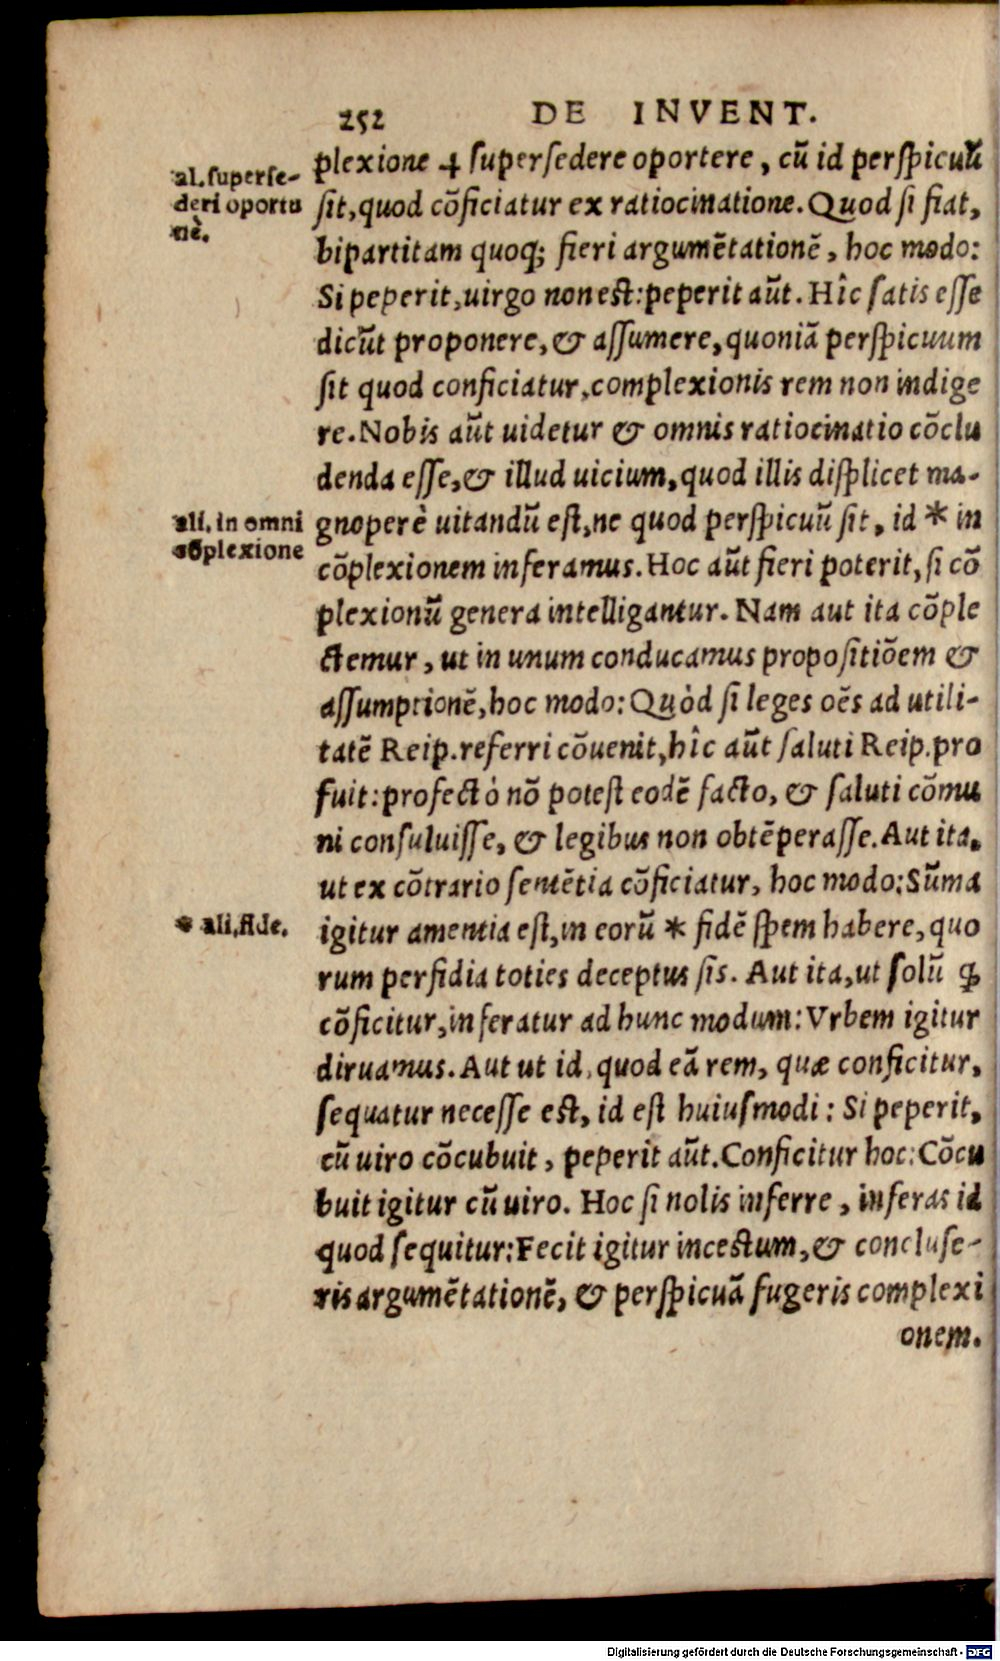 252 DE INVENT.
plexione ⸕ supersedere oportere, cū id perspicuū
sit, quod cōficiatur ex ratiocinatione. Quod si fiat,
bipartitam quoq; fieri argumētationē, hoc modo:
Si peperit, uirgo non est: peperit aūt. Hîc satis esse
dicūt proponere, & assumere, quoniā perspicuum
sit quod conficiatur, complexionis rem non indige
re. Nobis aūt uidetur & omnis ratiocinatio cōclu
denda esse, & illud uicium, quod illis displicet ma-
gnoperè uitandū est, ne quod perspicuū sit, id * in
cōplexionem inferamus. Hoc aūt fieri poterit, si cō
plexionū genera intelligantur. Nam aut ita cōple
ctemur, ut in unum conducamus propositiōem &
assumptionē, hoc modo: Quòd si leges oēs ad utili-
tatē Reip. referri cōuenit, hîc aūt saluti Reip. pro
fuit: profectò nō potest eodē facto, & saluti cōmu
ni consuluisse, & legibus non obtēperasse. Aut ita,
ut ex cōtrario sentētia cōficiatur, hoc modo: Sūma
igitur amentia est, in eorū * fidē spem habere, quo
rum perfidia toties deceptus sis. Aut ita, ut solū ꝙ
cōficitur, inferatur ad hunc modum: Vrbem igitur
diruamus. Aut ut id, quod eā rem, quæ conficitur,
sequatur necesse est, id est huiusmodi: Si peperit,
cū uiro cōcubuit, peperit aūt. Conficitur hoc: Cōcu
buit igitur cū uiro. Hoc si nolis inferre, inferas id
quod sequitur: Fecit igitur incestum, & concluse-
ris argumētationē, & perspicuā fugeris complexi
onem.
al. superse-
deri oportu
nè.
ali. in omni
cōplexione
* ali. fide.
Digitalisierung gefördert durch die Deutsche Forschungsgemeinschaft - DFG